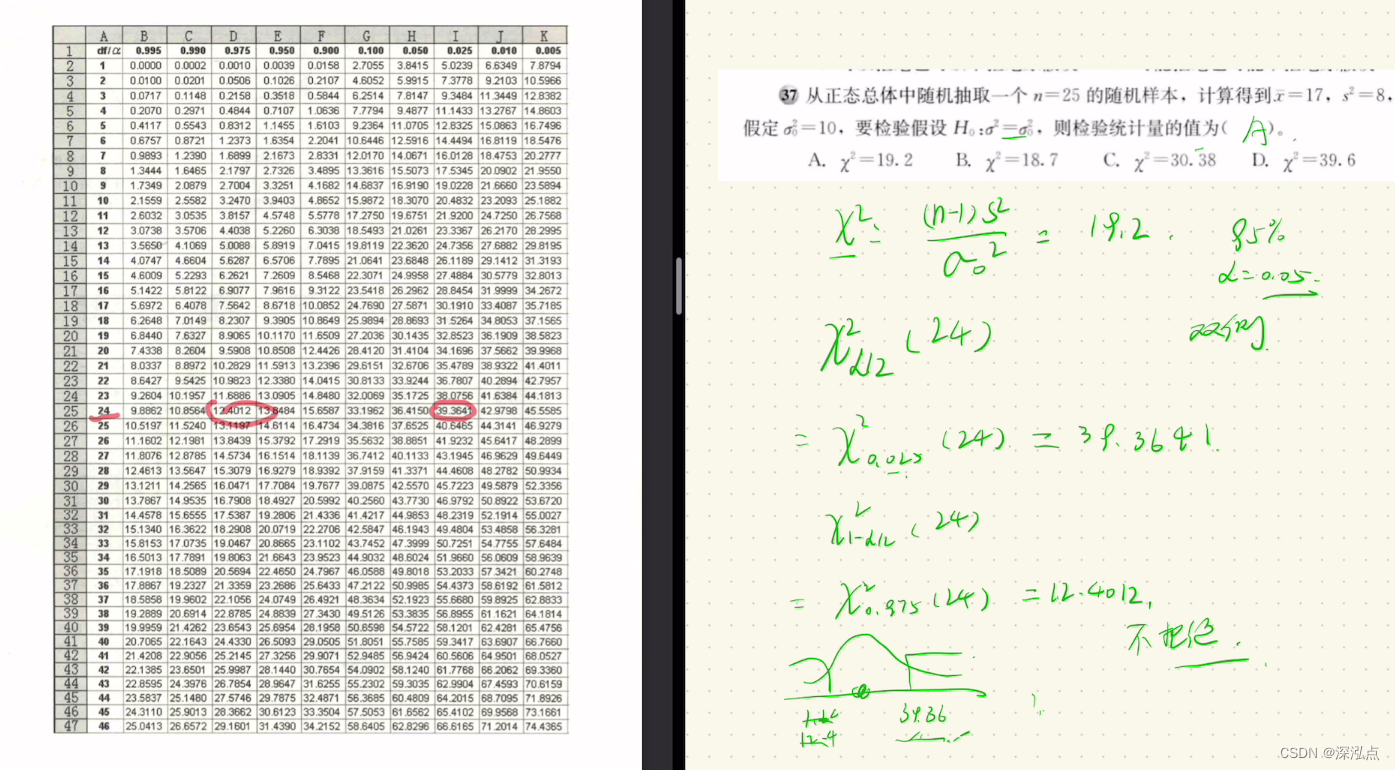 A B C D E F G H I J K
1 df/α 0.995 0.990 0.975 0.950 0.900 0.100 0.050 0.025 0.010 0.005
2 1 0.0000 0.0002 0.0010 0.0039 0.0158 2.7055 3.8415 5.0239 6.6349 7.8794
3 2 0.0100 0.0201 0.0506 0.1026 0.2107 4.6052 5.9915 7.3778 9.2103 10.5966
4 3 0.0717 0.1148 0.2158 0.3518 0.5844 6.2514 7.8147 9.3484 11.3449 12.8382
5 4 0.2070 0.2971 0.4844 0.7107 1.0636 7.7794 9.4877 11.1433 13.2767 14.8603
6 5 0.4117 0.5543 0.8312 1.1455 1.6103 9.2364 11.0705 12.8325 15.0863 16.7496
7 6 0.6757 0.8721 1.2373 1.6354 2.2041 10.6446 12.5916 14.4494 16.8119 18.5476
8 7 0.9893 1.2390 1.6899 2.1673 2.8331 12.0170 14.0671 16.0128 18.4753 20.2777
9 8 1.3444 1.6465 2.1797 2.7326 3.4895 13.3616 15.5073 17.5345 20.0902 21.9550
10 9 1.7349 2.0879 2.7004 3.3251 4.1682 14.6837 16.9190 19.0228 21.6660 23.5894
11 10 2.1559 2.5582 3.2470 3.9403 4.8652 15.9872 18.3070 20.4832 23.2093 25.1882
12 11 2.6032 3.0535 3.8157 4.5748 5.5778 17.2750 19.6751 21.9200 24.7250 26.7568
13 12 3.0738 3.5706 4.4038 5.2260 6.3038 18.5493 21.0261 23.3367 26.2170 28.2995
14 13 3.5650 4.1069 5.0088 5.8919 7.0415 19.8119 22.3620 24.7356 27.6882 29.8195
15 14 4.0747 4.6604 5.6287 6.5706 7.7895 21.0641 23.6848 26.1189 29.1412 31.3193
16 15 4.6009 5.2293 6.2621 7.2609 8.5468 22.3071 24.9958 27.4884 30.5779 32.8013
17 16 5.1422 5.8122 6.9077 7.9616 9.3122 23.5418 26.2962 28.8454 31.9999 34.2672
18 17 5.6972 6.4078 7.5642 8.6718 10.0852 24.7690 27.5871 30.1910 33.4087 35.7185
19 18 6.2648 7.0149 8.2307 9.3905 10.8649 25.9894 28.8693 31.5264 34.8053 37.1565
20 19 6.8440 7.6327 8.9065 10.1170 11.6509 27.2036 30.1435 32.8523 36.1909 38.5823
21 20 7.4338 8.2604 9.5908 10.8508 12.4426 28.4120 31.4104 34.1696 37.5662 39.9968
22 21 8.0337 8.8972 10.2829 11.5913 13.2396 29.6151 32.6706 35.4789 38.9322 41.4011
23 22 8.6427 9.5425 10.9823 12.3380 14.0415 30.8133 33.9244 36.7807 40.2894 42.7957
24 23 9.2604 10.1957 11.6886 13.0905 14.8480 32.0069 35.1725 38.0756 41.6384 44.1813
25 24 9.8862 10.8564 12.4012 13.8484 15.6587 33.1962 36.4150 39.3641 42.9798 45.5585
26 25 10.5197 11.5240 13.1197 14.6114 16.4734 34.3816 37.6525 40.6465 44.3141 46.9279
27 26 11.1602 12.1981 13.8439 15.3792 17.2919 35.5632 38.8851 41.9232 45.6417 48.2899
28 27 11.8076 12.8785 14.5734 16.1514 18.1139 36.7412 40.1133 43.1945 46.9629 49.6449
29 28 12.4613 13.5647 15.3079 16.9279 18.9392 37.9159 41.3371 44.4608 48.2782 50.9934
30 29 13.1211 14.2565 16.0471 17.7084 19.7677 39.0875 42.5570 45.7223 49.5879 52.3356
31 30 13.7867 14.9535 16.7908 18.4927 20.5992 40.2560 43.7730 46.9792 50.8922 53.6720
32 31 14.4578 15.6555 17.5387 19.2806 21.4336 41.4217 44.9853 48.2319 52.1914 55.0027
33 32 15.1340 16.3622 18.2908 20.0719 22.2706 42.5847 46.1943 49.4804 53.4858 56.3281
34 33 15.8153 17.0735 19.0467 20.8665 23.1102 43.7452 47.3999 50.7251 54.7755 57.6484
35 34 16.5013 17.7891 19.8063 21.6643 23.9523 44.9032 48.6024 51.9660 56.0609 58.9639
36 35 17.1918 18.5089 20.5694 22.4650 24.7967 46.0588 49.8018 53.2033 57.3421 60.2748
37 36 17.8867 19.2327 21.3359 23.2686 25.6433 47.2122 50.9985 54.4373 58.6192 61.5812
38 37 18.5858 19.9602 22.1056 24.0749 26.4921 48.3634 52.1923 55.6680 59.8925 62.8833
39 38 19.2889 20.6914 22.8785 24.8839 27.3430 49.5126 53.3835 56.8955 61.1621 64.1814
40 39 19.9959 21.4262 23.6543 25.6954 28.1958 50.6598 54.5722 58.1201 62.4281 65.4756
41 40 20.7065 22.1643 24.4330 26.5093 29.0505 51.8051 55.7585 59.3417 63.6907 66.7660
42 41 21.4208 22.9056 25.2145 27.3256 29.9071 52.9485 56.9424 60.5606 64.9501 68.0527
43 42 22.1385 23.6501 25.9987 28.1440 30.7654 54.0902 58.1240 61.7768 66.2062 69.3360
44 43 22.8595 24.3976 26.7854 28.9647 31.6255 55.2302 59.3035 62.9904 67.4593 70.6159
45 44 23.5837 25.1480 27.5746 29.7875 32.4871 56.3685 60.4809 64.2015 68.7095 71.8926
46 45 24.3110 25.9013 28.3662 30.6123 33.3504 57.5053 61.6562 65.4102 69.9568 73.1661
47 46 25.0413 26.6572 29.1601 31.4390 34.2152 58.6405 62.8296 66.6165 71.2014 74.4365
37 从正态总体中随机抽取一个 n=25 的随机样本，计算得到x̄=17，s²=8，
假定 σ₀²=10，要检验假设 H₀:σ²=σ₀²，则检验统计量的值为( A )。
A. χ²=19.2 B. χ²=18.7 C. χ²=30.38 D. χ²=39.6
χ² = (n-1)s² / σ₀² = 19.2. 95%
α=0.05.
χ²α/2 (24) 双侧
= χ²0.025 (24) = 39.3641.
χ²1-α/2 (24)
= χ²0.975 (24) = 12.4012,
不拒绝.
12.4 39.36
CSDN @深泓点